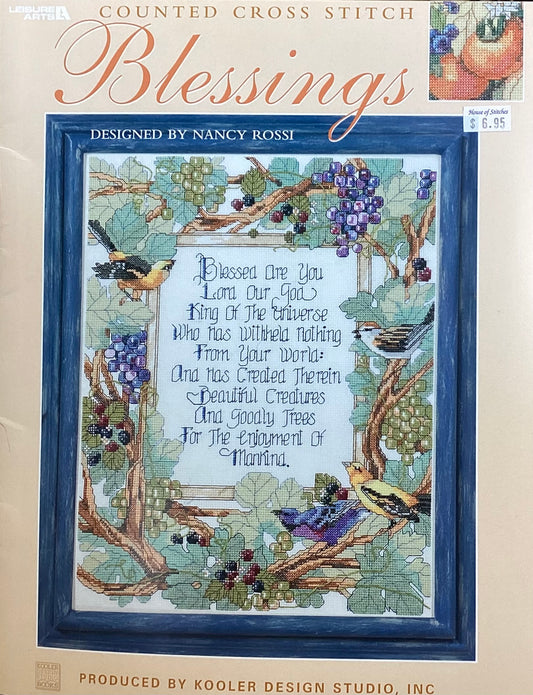 LEISURE
ARTS
COUNTED CROSS STITCH
Blessings
House of Stitches
$ 6.95
DESIGNED BY NANCY ROSSI
Blessed Are You
Lord Our God
King Of The Universe
Who Has Withheld Nothing
From Your World:
And Has Created Therein
Beautiful Creatures
And Goodly Trees
For The Enjoyment Of
Mankind.
KOOLER
PRODUCED BY KOOLER DESIGN STUDIO, INC